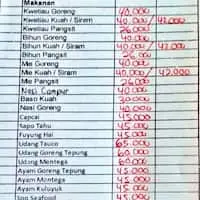 Makanan
Kwetiau Goreng 40.000
Kwetiau Kuah / Siram 40.000 / 42.000
Kwetiau Pangsit 26.000
Bihun Goreng 40.000
Bihun Kuah / Siram 40.000 / 42.000
Bihun Pangsit 26.000
Mie Goreng 40.000
Mie Kuah / Siram 40.000 / 42.000
Mie Pangsit 26.000
Nasi Campur 40.000
Baso Kuah 30.000
Nasi Goreng 40.000
Capcai 45.000
Sapo Tahu 45.000
Fuyung Hai 45.000
Udang Tauco 65.000
Udang Goreng Tepung 60.000
Udang Mentega 60.000
Ayam Goreng Tepung 45.000
Ayam Mentega 45.000
Ayam Kuluyuk 45.000
Sop Seafood